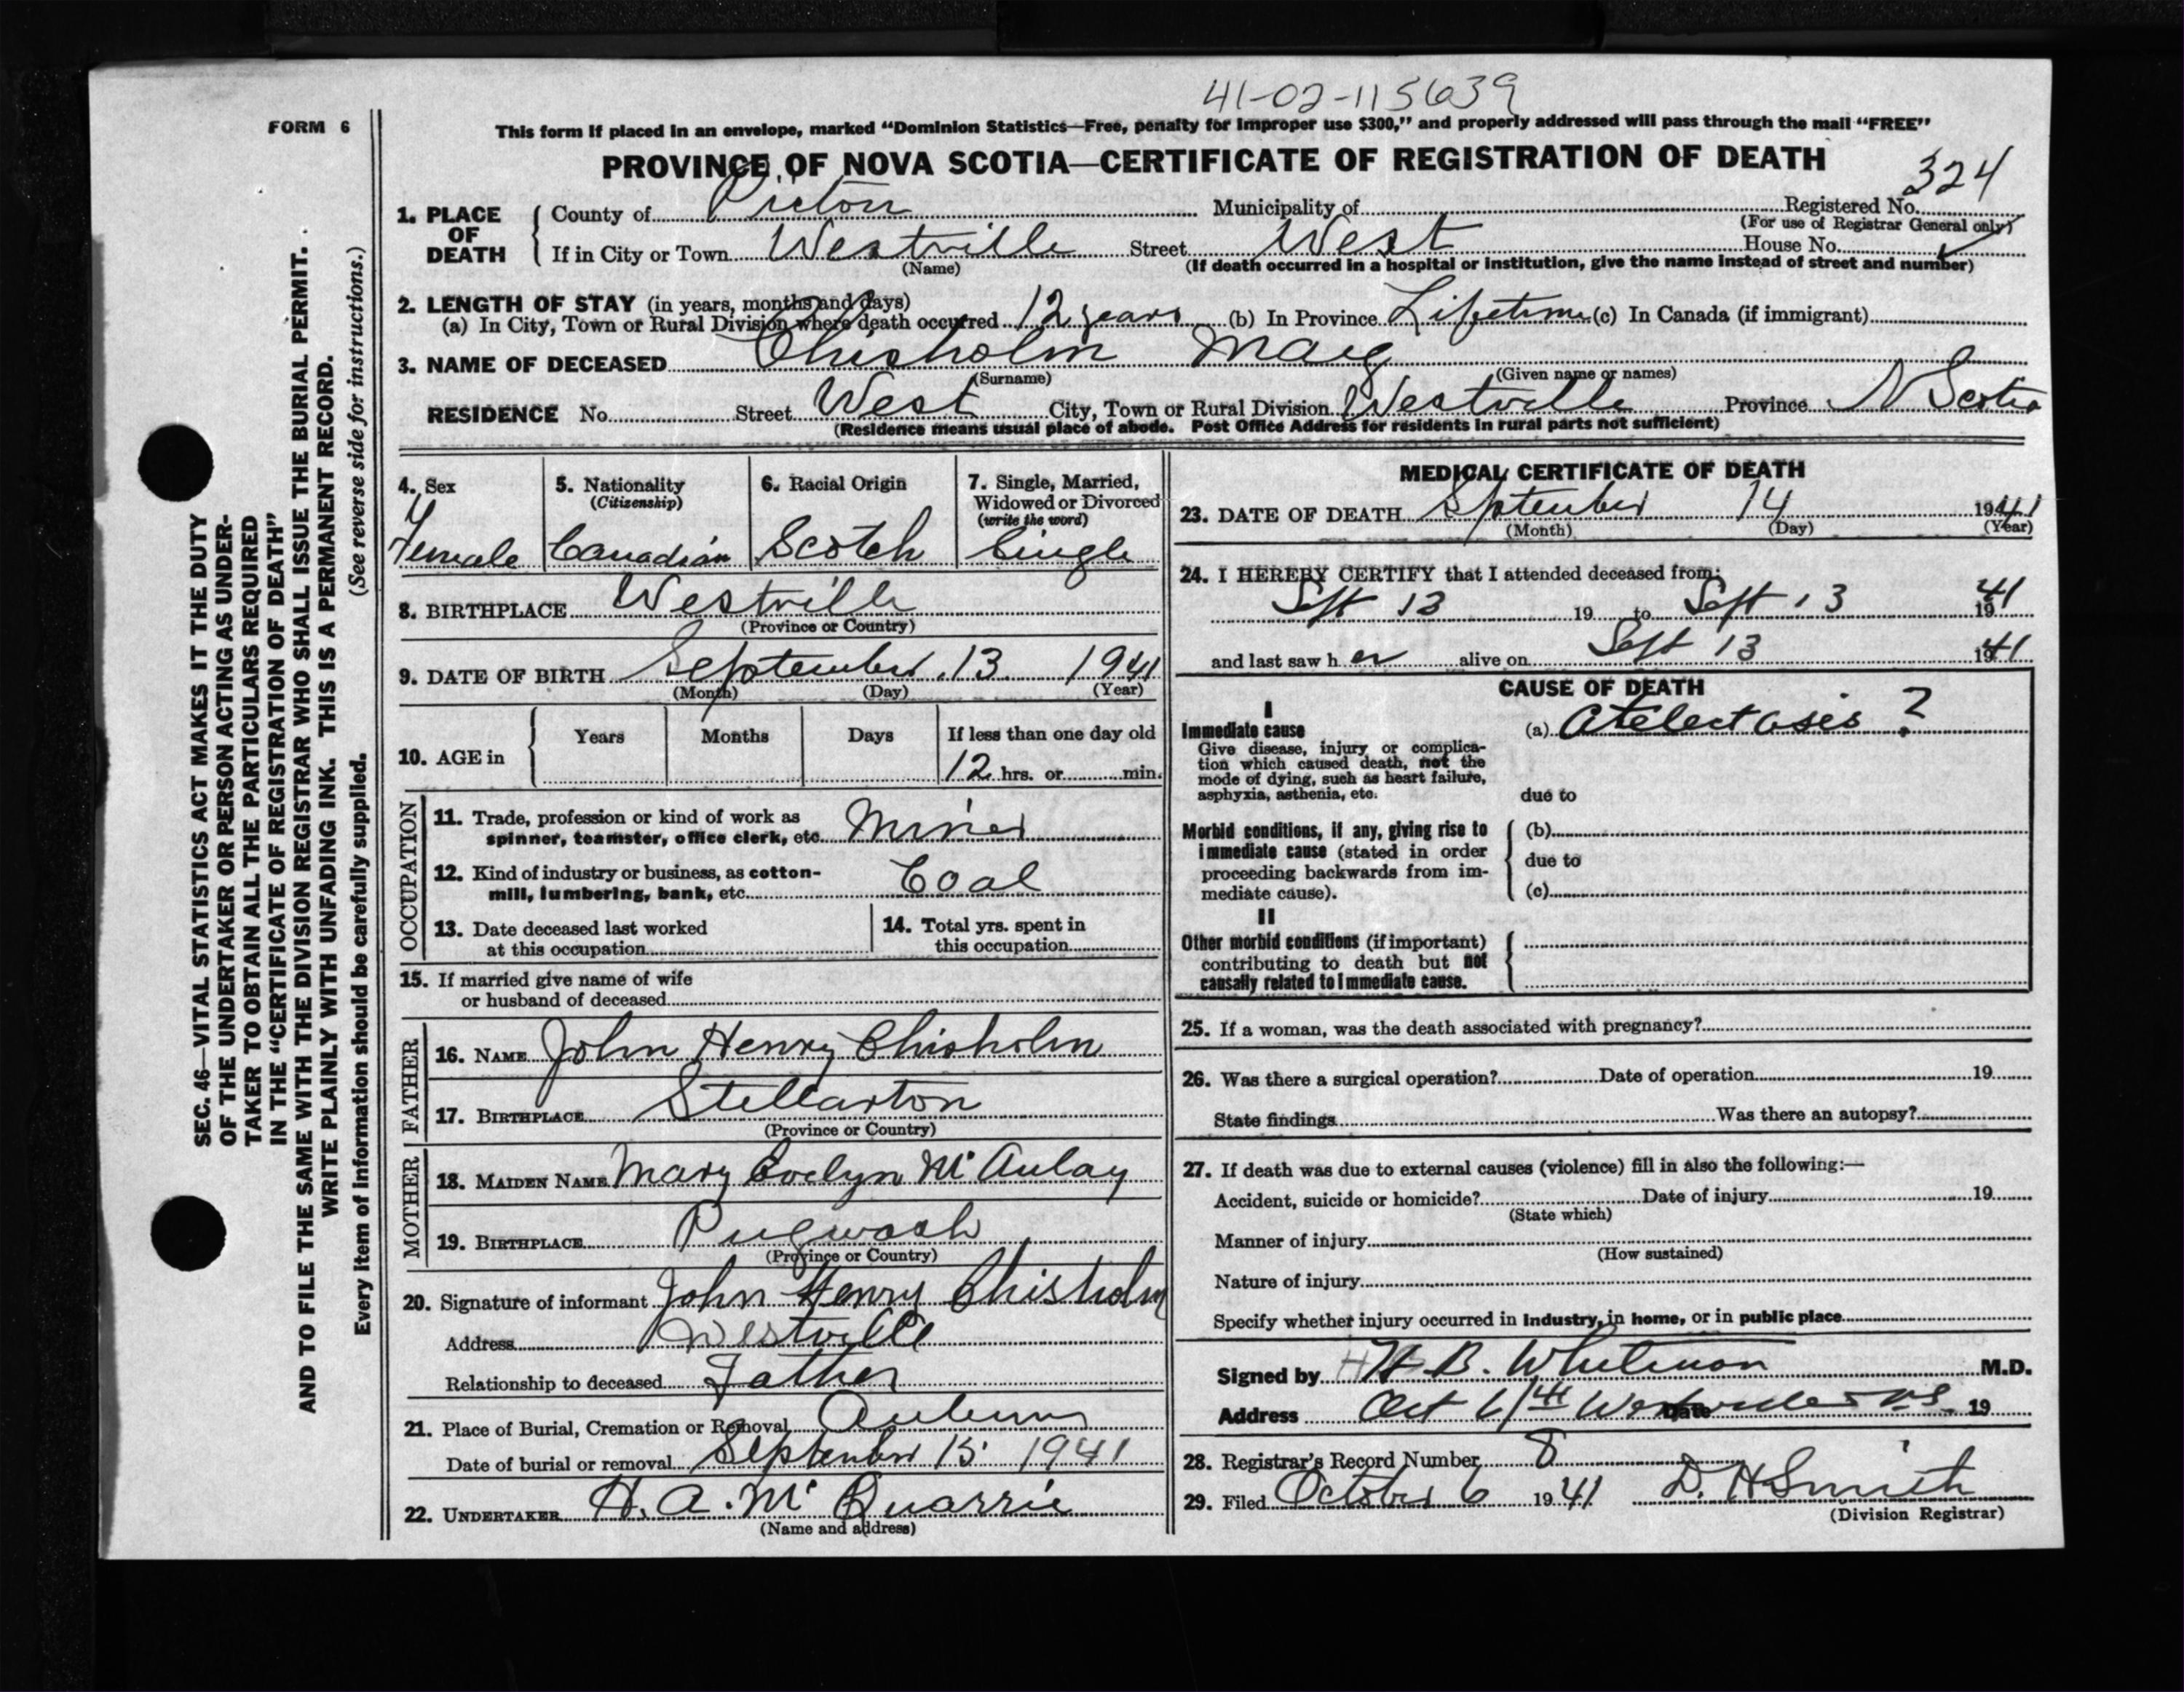 41-02-115639
FORM 6
This form if placed in an envelope, marked “Dominion Statistics—Free, penalty for improper use $300,” and properly addressed will pass through the mail “FREE”
PROVINCE OF NOVA SCOTIA—CERTIFICATE OF REGISTRATION OF DEATH
324
1. PLACE OF DEATH County of Pictou Municipality of Registered No.
(For use of Registrar General only)
If in City or Town Westville Street West House No.
(Name) (If death occurred in a hospital or institution, give the name instead of street and number)
2. LENGTH OF STAY (in years, months and days)
(a) In City, Town or Rural Division where death occurred 12 years (b) In Province Lifetime (c) In Canada (if immigrant)
3. NAME OF DECEASED Chisholm Mary
(Surname) (Given name or names)
RESIDENCE No. Street West City, Town or Rural Division Westville Province N Scotia
(Residence means usual place of abode. Post Office Address for residents in rural parts not sufficient)
4. Sex Female
5. Nationality (Citizenship) Canadian
6. Racial Origin Scotch
7. Single, Married, Widowed or Divorced (write the word) Single
8. BIRTHPLACE Westville
(Province or Country)
9. DATE OF BIRTH September 13 1941
(Month) (Day) (Year)
10. AGE in Years Months Days If less than one day old
12 hrs. or min.
OCCUPATION
11. Trade, profession or kind of work as
spinner, teamster, office clerk, etc. Miner
12. Kind of industry or business, as cotton-
mill, lumbering, bank, etc. Coal
13. Date deceased last worked
at this occupation
14. Total yrs. spent in
this occupation
15. If married give name of wife
or husband of deceased
FATHER
16. NAME John Henry Chisholm
17. BIRTHPLACE Stellarton
(Province or Country)
MOTHER
18. MAIDEN NAME Mary Evelyn McAulay
19. BIRTHPLACE Pugwash
(Province or Country)
20. Signature of informant John Henry Chisholm
Address Westville
Relationship to deceased Father
21. Place of Burial, Cremation or Removal Auburn
Date of burial or removal September 15 1941
22. UNDERTAKER H. A. McQuarrie
(Name and address)
MEDICAL CERTIFICATE OF DEATH
23. DATE OF DEATH September 14 1941
(Month) (Day) (Year)
24. I HEREBY CERTIFY that I attended deceased from:
Sept 13 19 to Sept 13 1941
and last saw her alive on Sept 13 1941
CAUSE OF DEATH
I
Immediate cause (a) Atelectasis ?
Give disease, injury or complica-
tion which caused death, not the
mode of dying, such as heart failure,
asphyxia, asthenia, etc.
due to
Morbid conditions, if any, giving rise to
immediate cause (stated in order
proceeding backwards from im-
mediate cause).
(b)
due to
(c)
II
Other morbid conditions (if important)
contributing to death but not
causally related to immediate cause.
25. If a woman, was the death associated with pregnancy?
26. Was there a surgical operation? Date of operation 19
State findings Was there an autopsy?
27. If death was due to external causes (violence) fill in also the following:—
Accident, suicide or homicide? Date of injury 19
(State which)
Manner of injury
(How sustained)
Nature of injury
Specify whether injury occurred in industry, in home, or in public place
Signed by H B. Whitman M.D.
Address Oct 6/41 Westville N.S. Date 19
28. Registrar's Record Number 8
29. Filed October 6 1941 D. H Smith
(Division Registrar)
SEC. 46—VITAL STATISTICS ACT MAKES IT THE DUTY
OF THE UNDERTAKER OR PERSON ACTING AS UNDER-
TAKER TO OBTAIN ALL THE PARTICULARS REQUIRED
IN THE “CERTIFICATE OF REGISTRATION OF DEATH”
AND TO FILE THE SAME WITH THE DIVISION REGISTRAR WHO SHALL ISSUE THE BURIAL PERMIT.
WRITE PLAINLY WITH UNFADING INK. THIS IS A PERMANENT RECORD.
Every item of information should be carefully supplied. (See reverse side for instructions.)